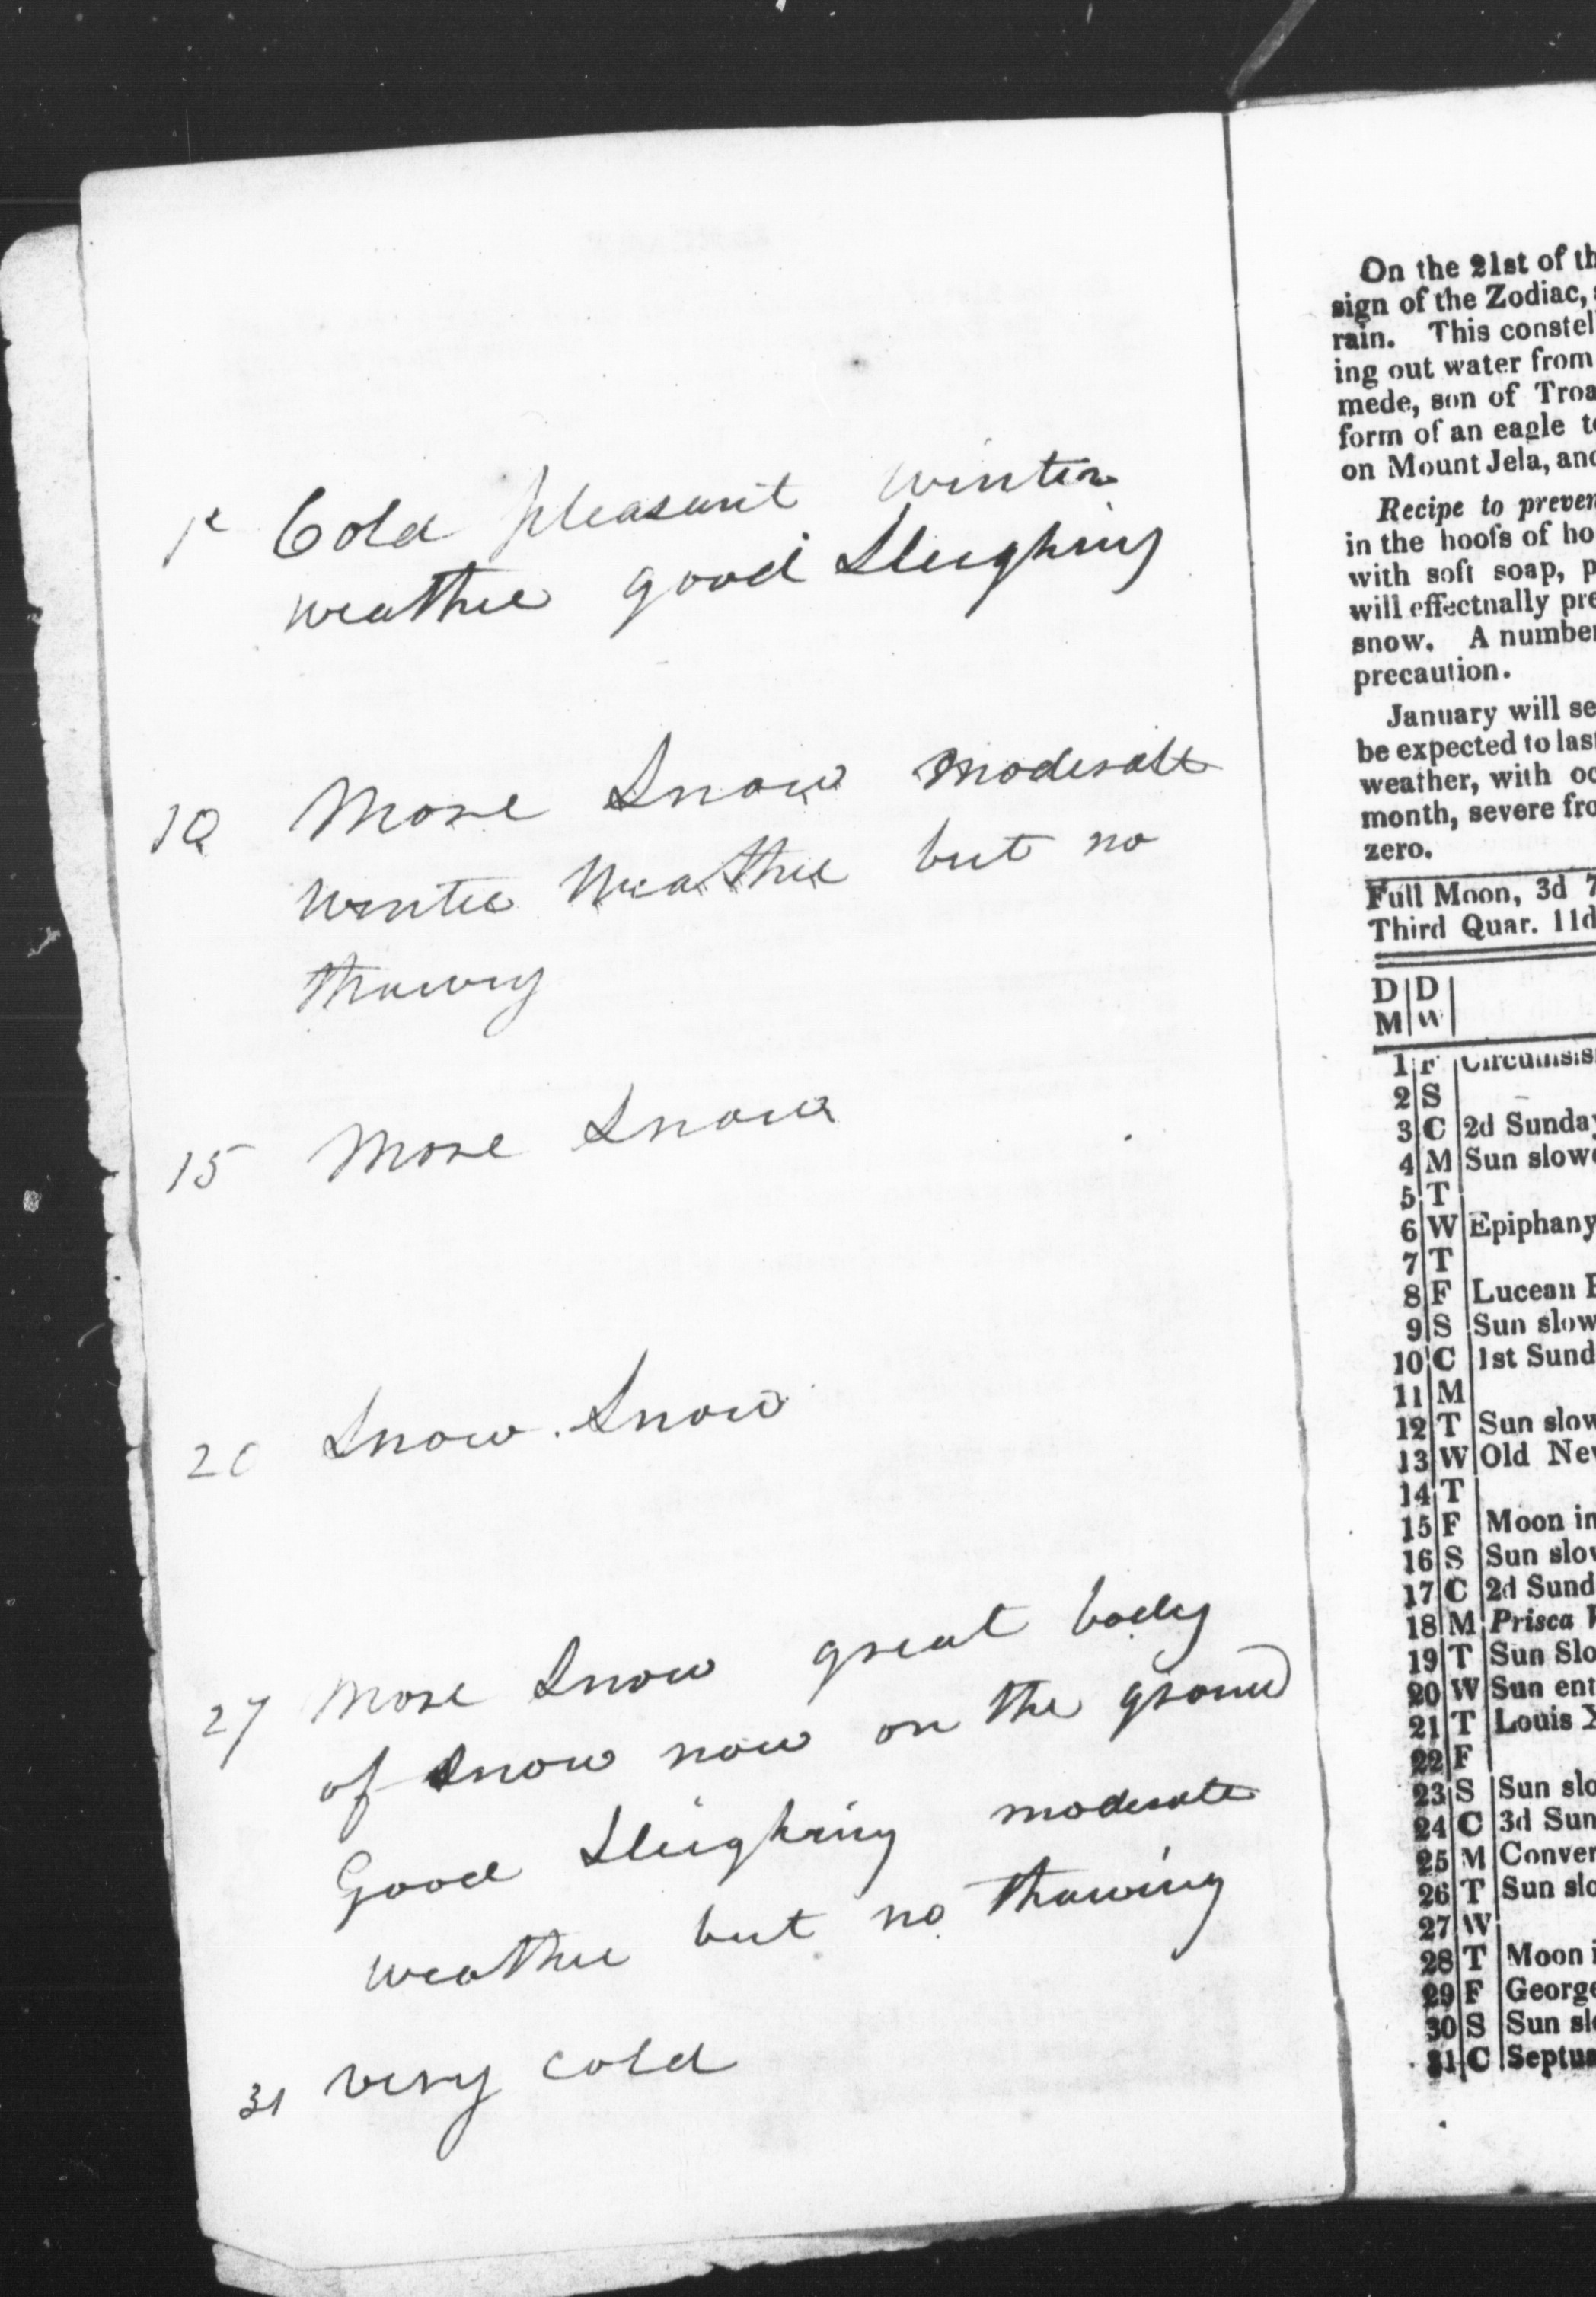 1st Cold pleasant winter
weather good Sleighing
10 More Snow moderate
winter Weather but no
thawing
15 More Snow
20 Snow. Snow
27 More Snow great body
of Snow now on the ground
Good Sleighing moderate
weather but no thawing
31 very cold
On the 21st of th
sign of the Zodiac,
rain. This constel
ing out water from
mede, son of Troa
form of an eagle t
on Mount Jela, and
Recipe to preven
in the hoofs of ho
with soft soap, p
will effectually pre
snow. A number
precaution.
January will se
be expected to last
weather, with oc
month, severe fro
zero.
Full Moon, 3d 7
Third Quar. 11d
D D
M W
1 F Circumsis
2 S
3 C 2d Sunday
4 M Sun slow
5 T
6 W Epiphany
7 T
8 F Lucean
9 S Sun slow
10 C 1st Sund
11 M
12 T Sun slow
13 W Old Ne
14 T
15 F Moon in
16 S Sun slow
17 C 2d Sund
18 M Prisca
19 T Sun Slo
20 W Sun ent
21 T Louis X
22 F
23 S Sun slo
24 C 3d Sun
25 M Conver
26 T Sun slo
27 W
28 T Moon i
29 F George
30 S Sun sl
31 C Septua